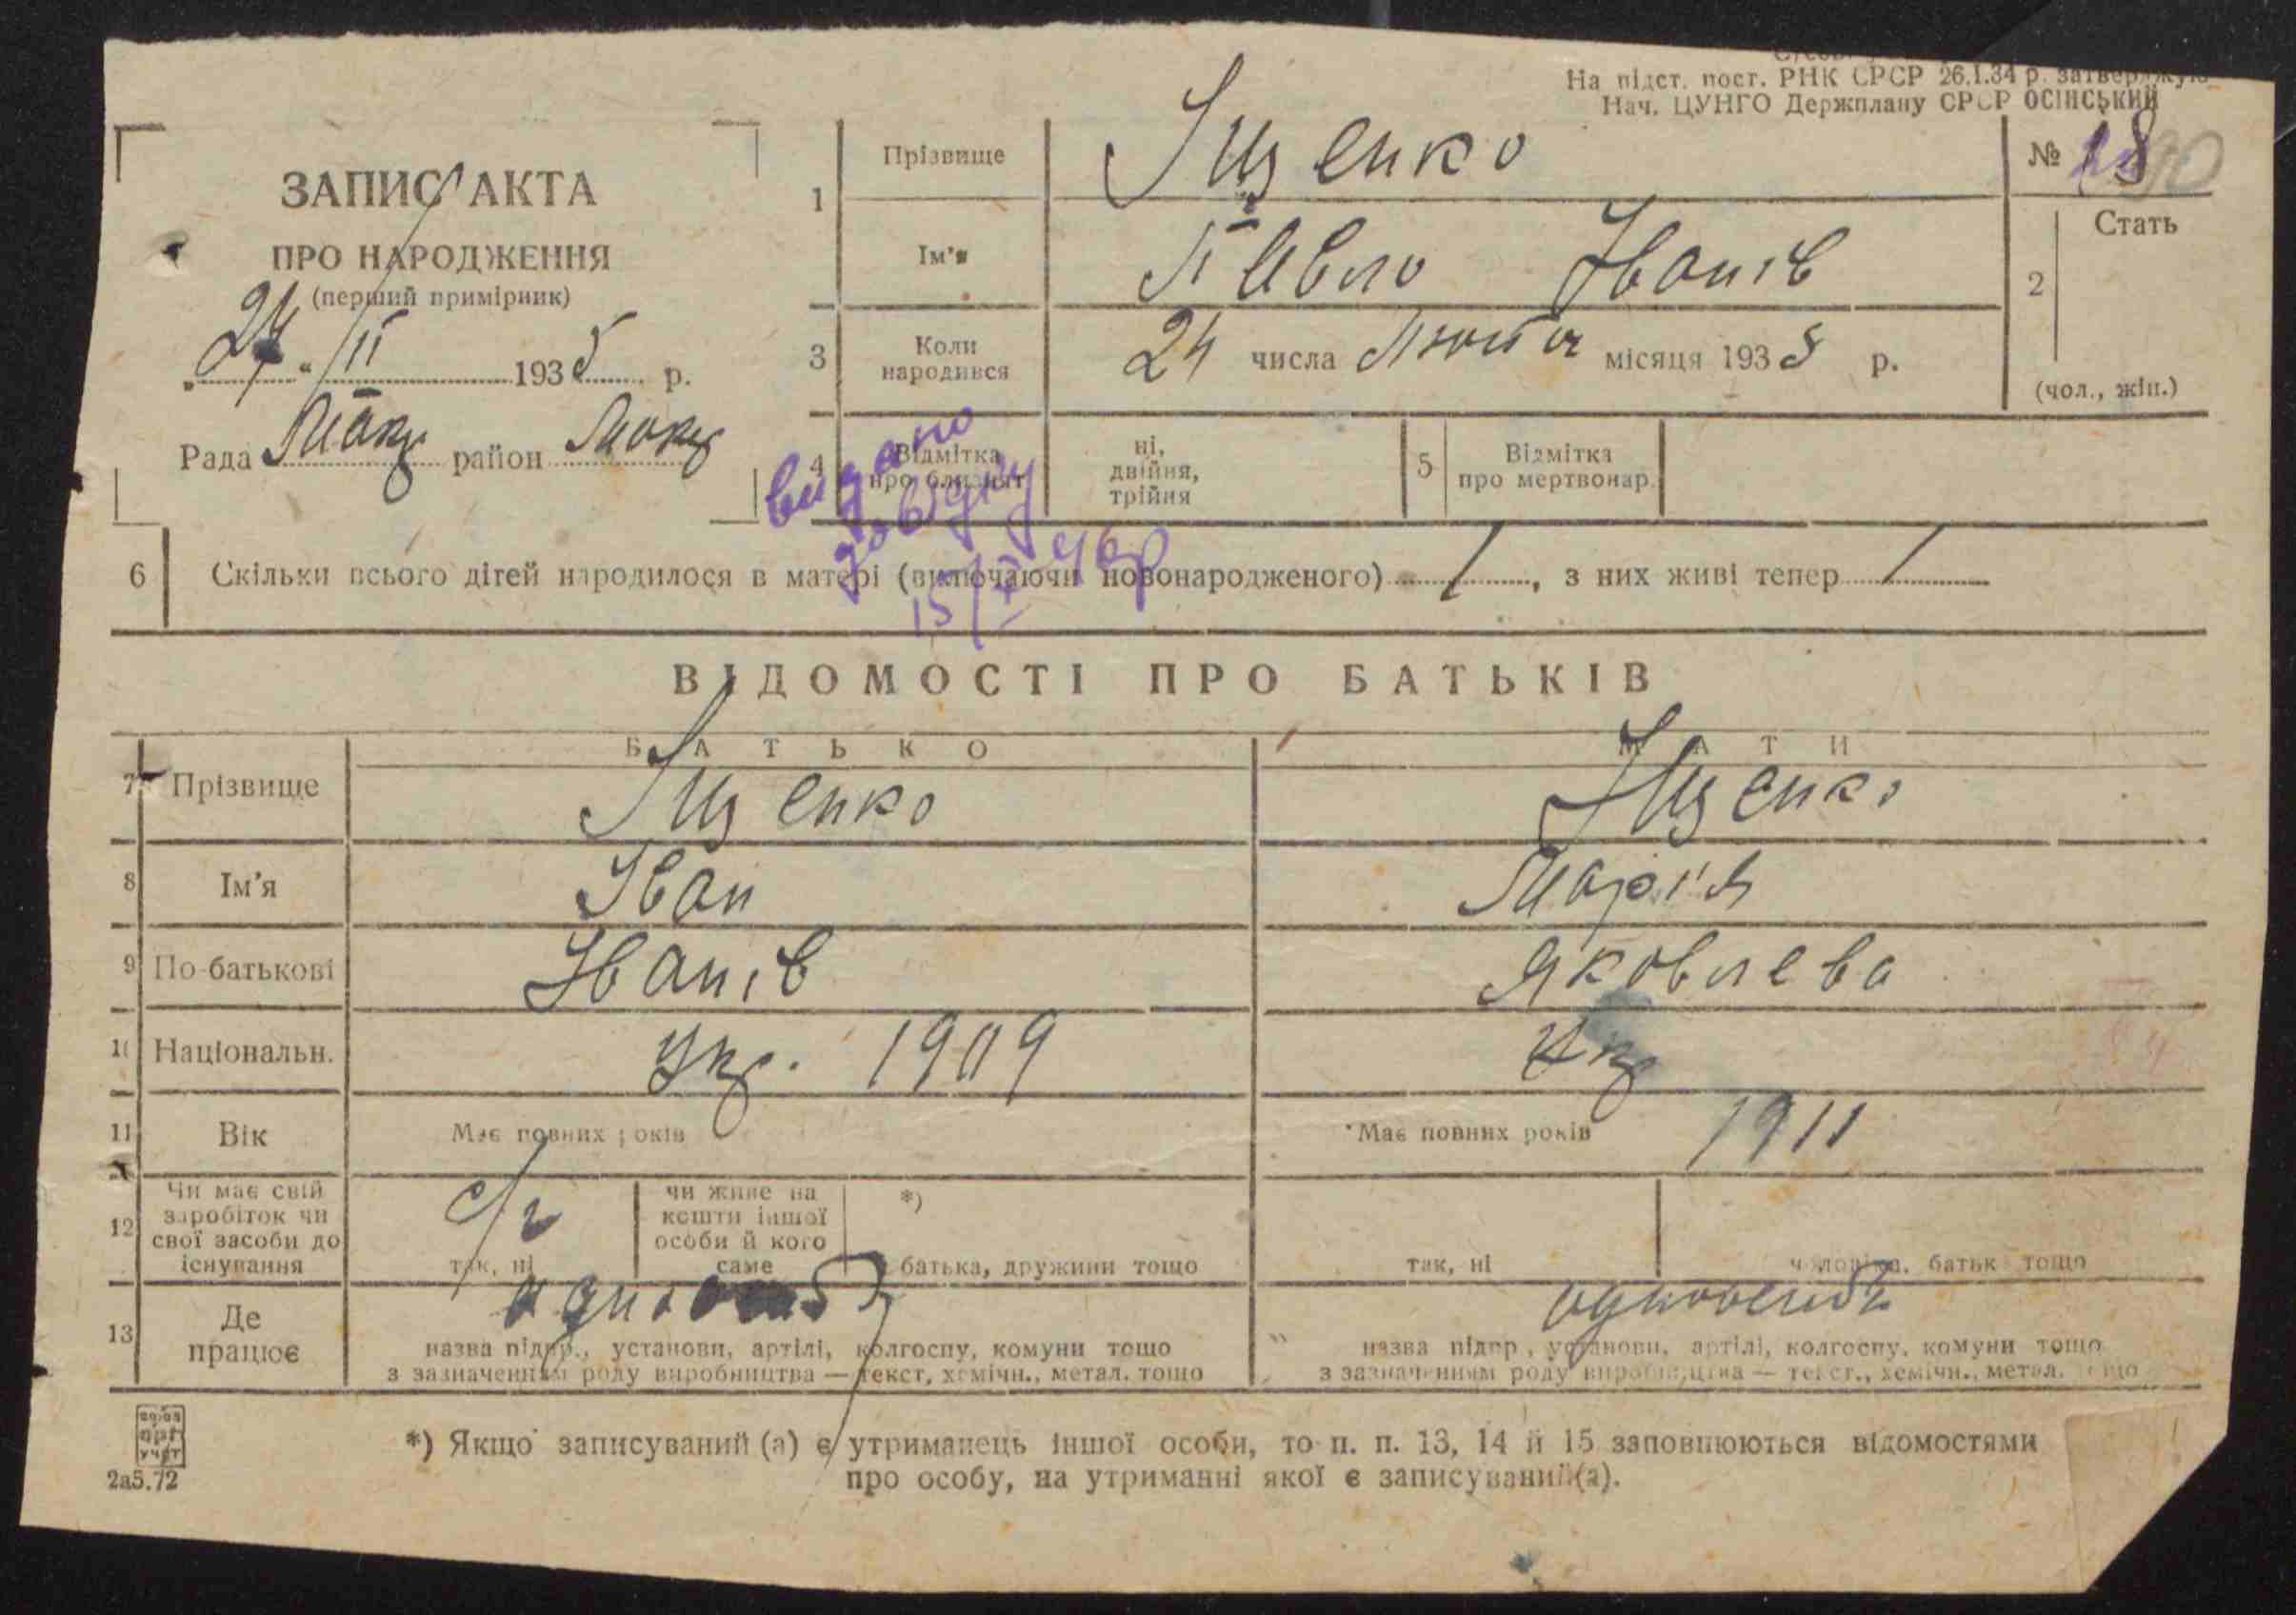 На підст. пост. РНК СРСР 26.1.34 р. затверджую
Нач. ЦУНГО Держплану СРСР ОСІНСЬКИЙ
ЗАПИС АКТА
ПРО НАРОДЖЕННЯ
(перший примірник)
„ 24 “ II 1935 р.
Рада район
1 Прізвище Іщенко
№ 18
Ім'я Павло Іванів
2 Стать
(чол., жін.)
3 Коли народився 24 числа Лютого місяця 1935 р.
4 Відмітка про близнят ні, двійня, трійня
5 Відмітка про мертвонар.
видано
довідку
15/ 46р
6 Скільки всього дітей народилося в матері (включаючи новонародженого) 1, з них живі тепер 1
ВІДОМОСТІ ПРО БАТЬКІВ
БАТЬКО МАТИ
7 Прізвище Іщенко Іщенко
8 Ім'я Іван Марія
9 По-батькові Іванів Яковлева
10 Національн. Укр. 1909 Укр
11 Вік Має повних років Має повних років 1911
12 Чи має свій заробіток чи свої засоби до існування с/г так, ні чи живе на кошти іншої особи й кого саме *) батька, дружини тощо так, ні чоловіка, батьк тощо
13 Де працює одноосіб
назва підпр., установи, артілі, колгоспу, комуни тощо назва підпр., установи, артілі, колгоспу, комуни тощо
з зазначенням роду виробництва — текст, хемічн., метал. тощо з зазначенням роду виробництва — текст., хемічн., метал. тощо
*) Якщо записуваний (а) є утриманець іншої особи, то п. п. 13, 14 й 15 заповнюються відомостями
про особу, на утриманні якої є записуваний(а).
2а5.72